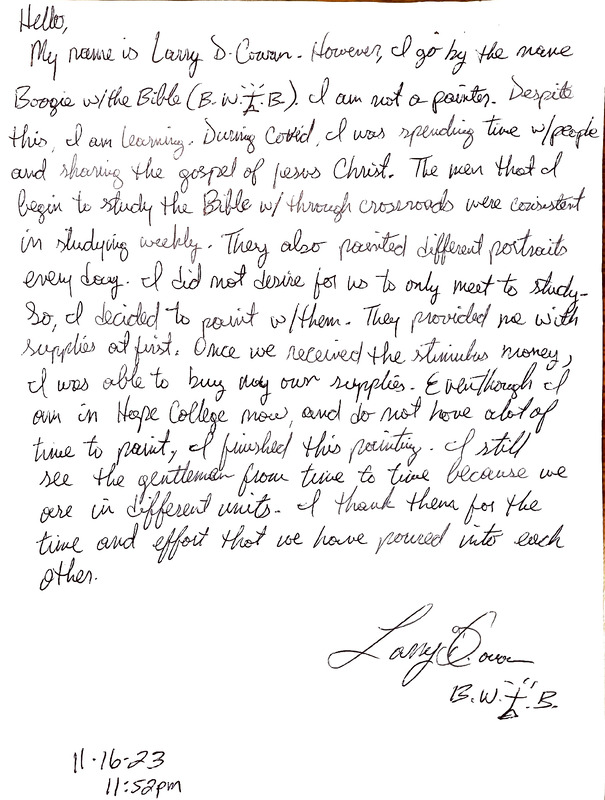 Hello,
My name is Larry D. Cowan. However, I go by the name
Boogie w/the Bible (B.W.T.B.). I am not a painter. Despite
this, I am learning. During Covid, I was spending time w/people
and sharing the gospel of Jesus Christ. The men that I
begin to study the Bible w/ through crossroads were consistent
in studying weekly. They also painted different portraits
every day. I did not desire for us to only meet to study.
So, I decided to paint w/them. They provided me with
supplies at first. Once we received the stimulus money,
I was able to buy my own supplies. Eventhough I
am in Hope College now, and do not have alot of
time to paint, I finished this painting. I still
see the gentleman from time to time because we
are in different units. I thank them for the
time and effort that we have poured into each
other.
Larry D. Cowan
B.W.T.B.
11-16-23
11:52pm